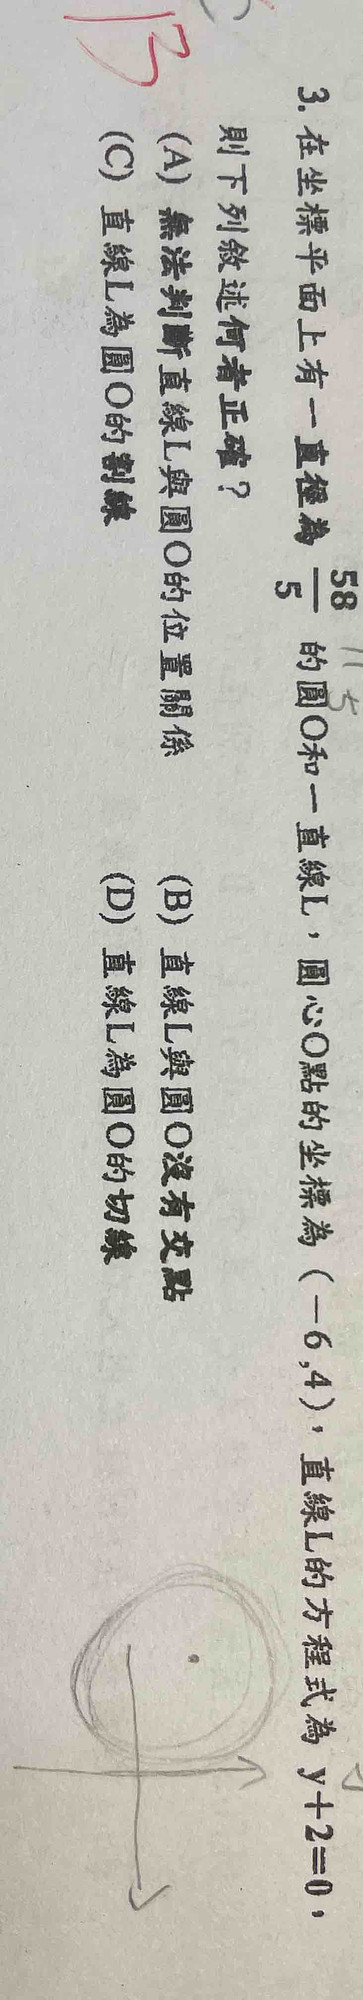 3. 在坐標平面上有一直徑為 58/5 的圓O和一直線L，圓心O點的坐標為（－6,4），直線L的方程式為 y＋2＝0，
則下列敘述何者正確？
(A) 無法判斷直線L與圓O的位置關係 (B) 直線L與圓O沒有交點
(C) 直線L為圓O的割線 (D) 直線L為圓O的切線
B
11
5